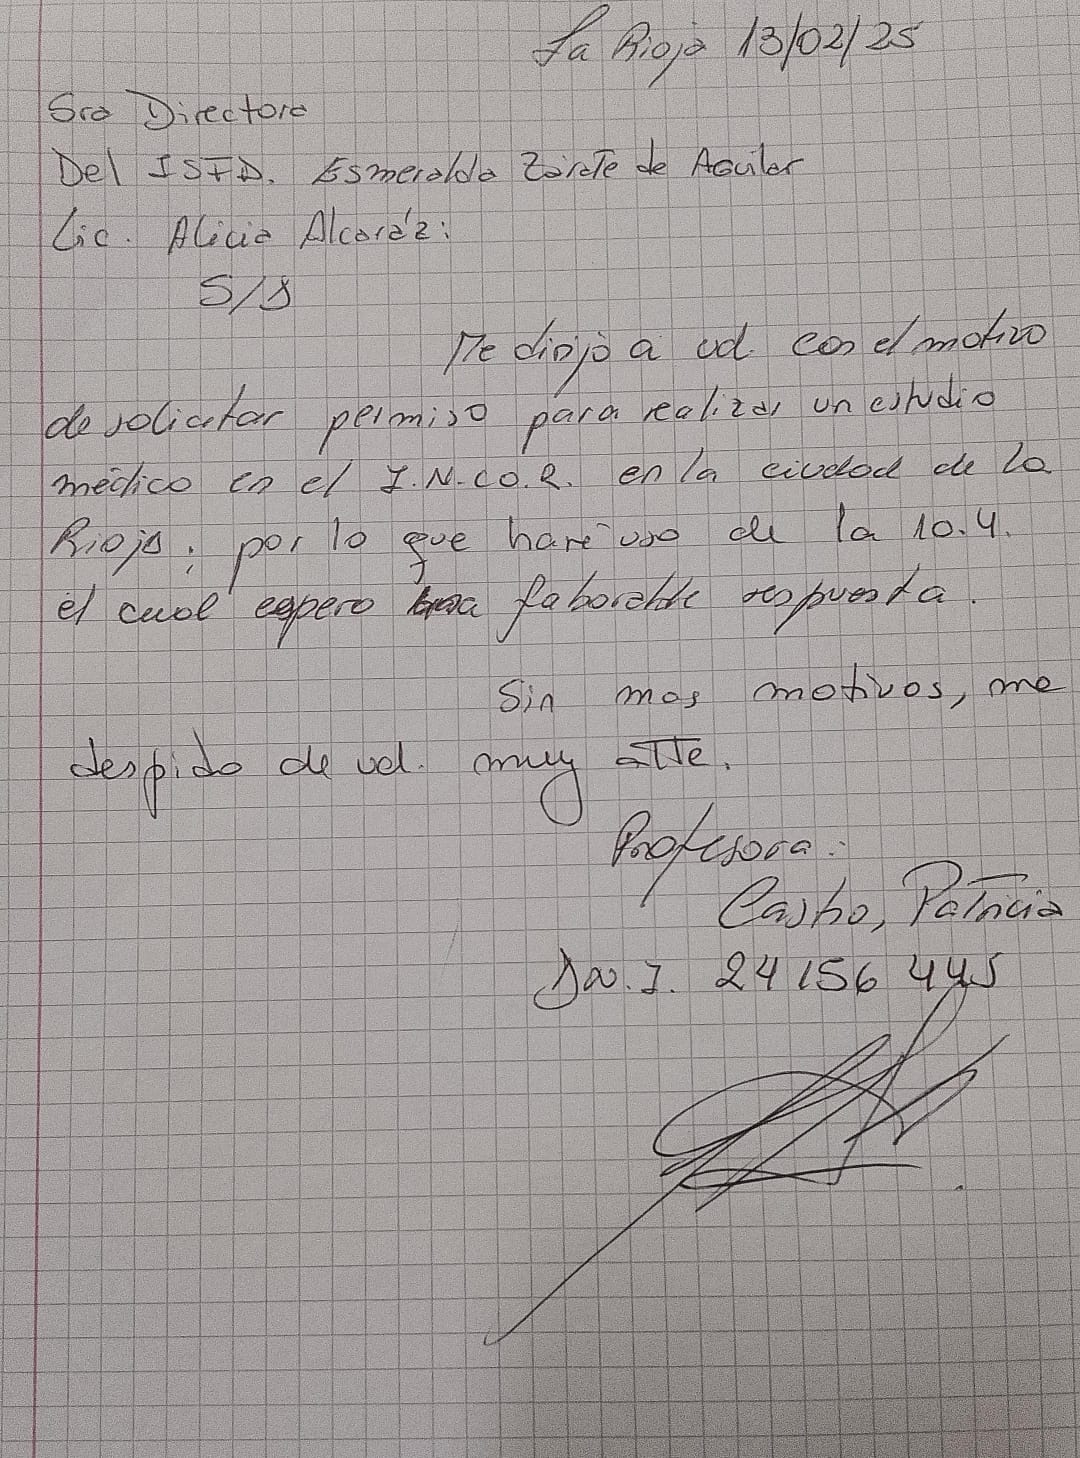 La Rioja 13/02/25
Sra Directora
Del ISFD. Esmeralda Zárate de Aguilar
Lic. Alicia Alcaráz:
S/D
Me dirijo a ud. con el motivo
de solicitar permiso para realizar un estudio
médico en el I.N.CO.R. en la ciudad de la
Rioja; por lo que haré uso de la 10.4.
el cual espero faborable respuesta.
Sin mas motivos, me
despido de ud. muy atte.
Profesora:
Castro, Patricia
D.N.I. 24 156 445